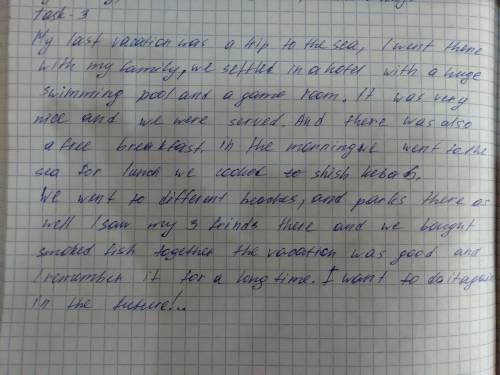 Task - 3
My last vacation was a trip to the sea, I went there
with my family, we settled in a hotel with a huge
swimming pool and a game room. It was very
nice and we were served. And there was also
a free breakfast in the morning we went to the
sea for lunch we cooked to shish kebab.
We went to different beaches, and parks there as
well I saw my 3 frinds there and we bought
smoked fish together the vacation was good and
I remember it for a long time. I want to do it again
in the future!..